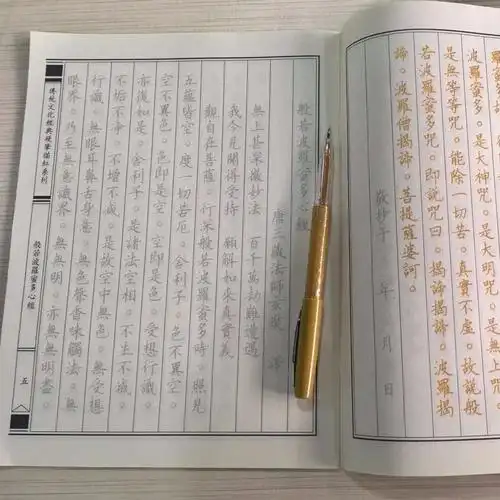 波羅蜜多。是大神咒。是大明咒。
是無等等咒。能除一切苦。真實不虛。故說般
若波羅蜜多咒。即說咒曰。揭諦揭諦。波羅揭
諦。波羅僧揭諦。菩提薩婆訶。
敬抄于 年 月 日
般若波羅蜜多心經
唐三藏法師玄奘 譯
無上甚深微妙法 百千萬劫難遭遇
我今見聞得受持 願解如來真實義
觀自在菩薩。行深般若波羅蜜多時。照見
五蘊皆空。度一切苦厄。舍利子。色不異空。
空不異色。色即是空。空即是色。受想行識。
亦復如是。舍利子。是諸法空相。不生不滅。
不垢不淨。不增不減。是故空中無色。無受想
行識。無眼耳鼻舌身意。無色聲香味觸法。無
眼界。乃至無意識界。無無明。亦無無明盡。
傳統文化經典硬筆描紅系列
般若波羅蜜多心經
五